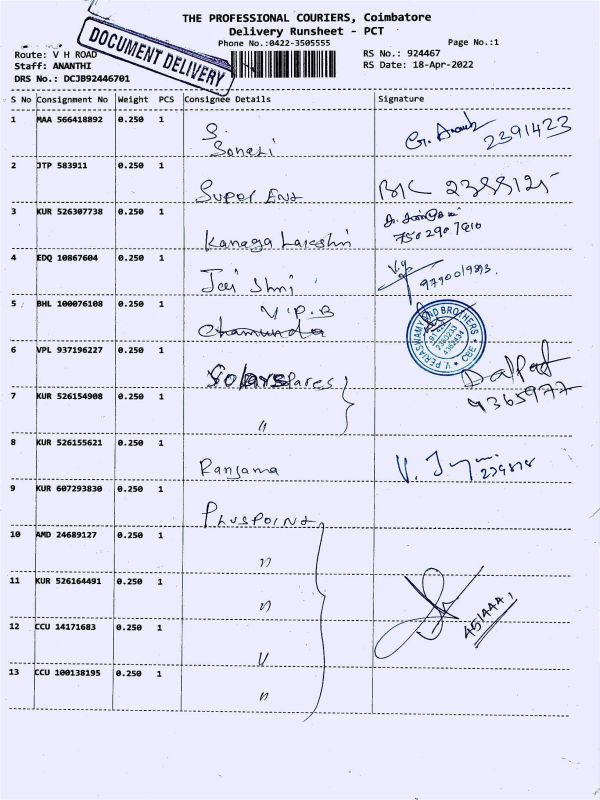 THE PROFESSIONAL COURIERS, Coimbatore
Delivery Runsheet - PCT
Phone No.:0422-3505555
Page No.:1
DOCUMENT DELIVERY
Route: V H ROAD
Staff: ANANTHI
DRS No.: DCJB92446701
RS No.: 924467
RS Date: 18-Apr-2022
S No Consignment No Weight PCS Consignee Details Signature
1 MAA 566418892 0.250 1 S. 2391423
2 JTP 583911 0.250 1 Super
3 KUR 526307738 0.250 1 Kanaga Lakshmi
4 EDQ 10867604 0.250 1 Jai Shri
5 BHL 100076108 0.250 1 V.P.B
Chamunda
V. PERIASWAMY AND BROTHERS
CBE
6 VPL 937196227 0.250 1 Solar Spares
7 KUR 526154908 0.250 1 "
8 KUR 526155621 0.250 1 Ranjama
9 KUR 607293830 0.250 1 PLUSPOINT
10 AMD 24689127 0.250 1 "
11 KUR 526164491 0.250 1 "
12 CCU 14171683 0.250 1 "
13 CCU 100138195 0.250 1 "